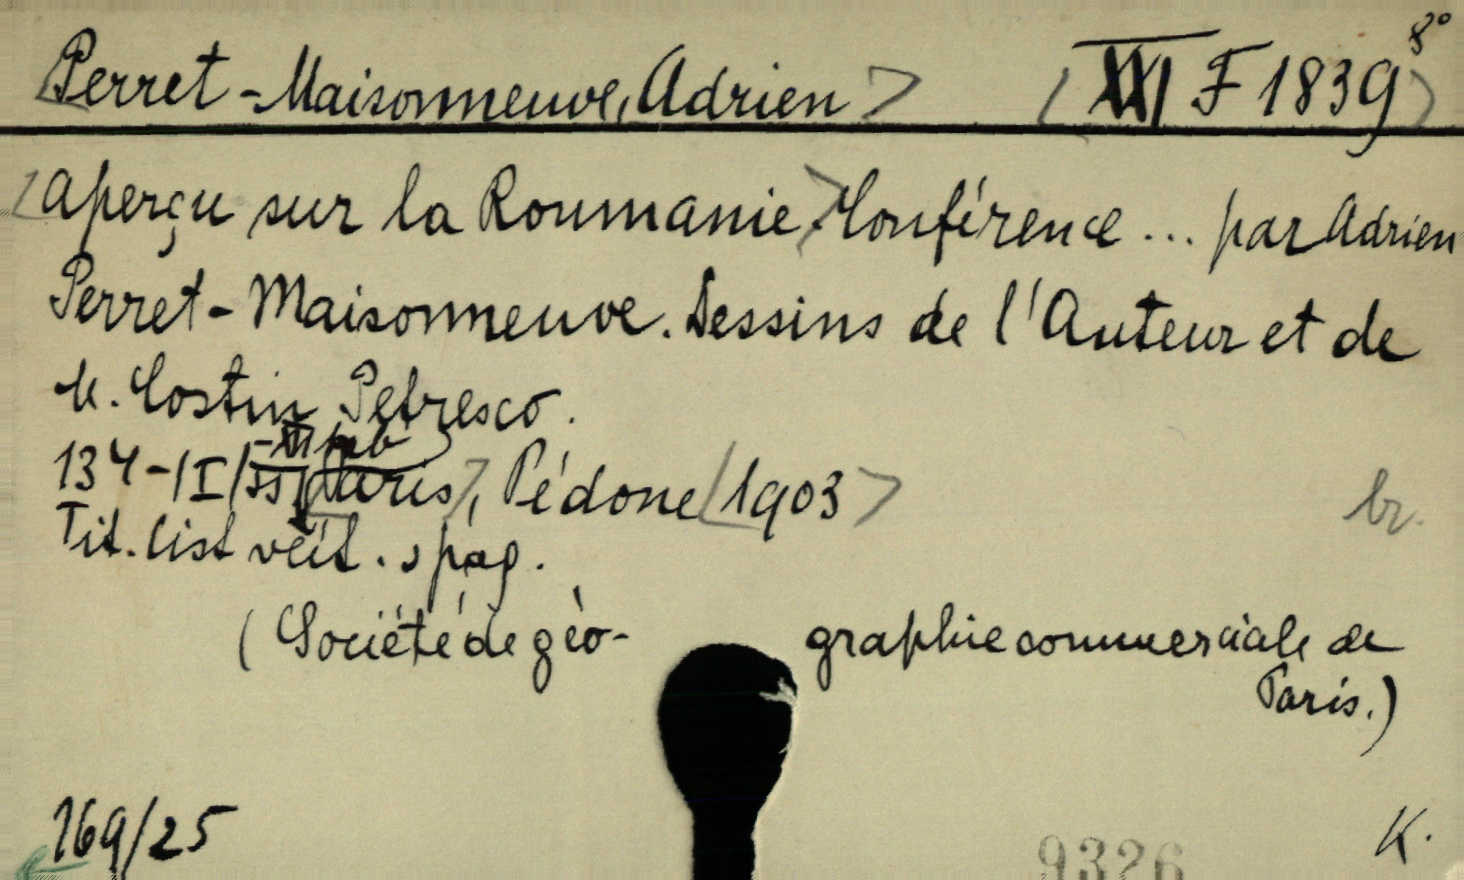 Perret-Maisonneuve, Adrien XXI F 1839 8°
Aperçu sur la Roumanie. Conférence ... par Adrien
Perret-Maisonneuve. Dessins de l'Auteur et de
M. Costin Petresco.
134-|I|ss Paris, Pédone 1903
br.
Tit. list veit. s pag.
(Société de géo- graphie commerciale de
Paris.)
169/25 K.
9326